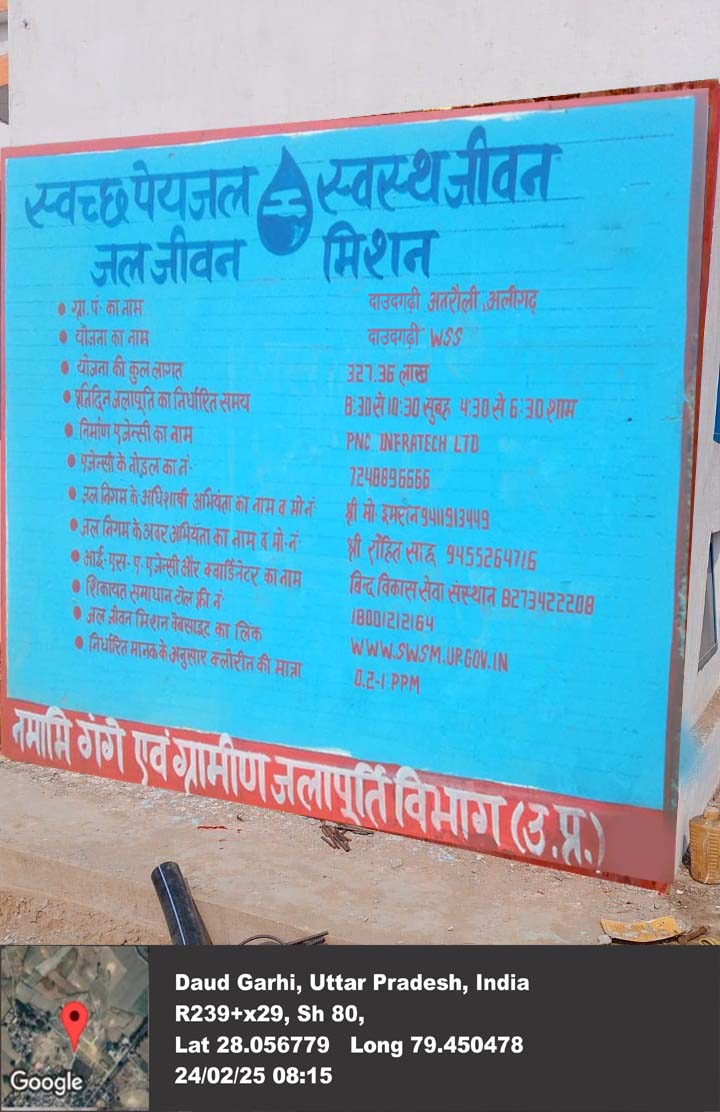 स्वच्छ पेयजल स्वस्थ जीवन
जल जीवन मिशन
• ग्रा. पं. का नाम दाउदगढ़ी अतरौली अलीगढ़
• योजना का नाम दाउदगढ़ी WSS
• योजना की कुल लागत 327.36 लाख
• प्रतिदिन जलापूर्ति का निर्धारित समय 8:30 से 10:30 सुबह 4:30 से 6:30 शाम
• निर्माण एजेन्सी का नाम PNC INFRATECH LTD
• एजेन्सी के नोडल का नं. 7248896666
• जल निगम के अधिशाषी अभियंता का नाम व मो. नं. श्री मो. इमरान 9411913449
• जल निगम के अवर अभियंता का नाम व मो. नं. श्री रोहित साहू 9455264716
• आई. एस. ए. एजेन्सी और क्वार्डिनेटर का नाम बिन्द्र विकास सेवा संस्थान 8273422208
• शिकायत समाधान टॉल फ्री नं. 18001212164
• जल जीवन मिशन वेबसाइट का लिंक WWW.SWSM.UP.GOV.IN
• निर्धारित मानक के अनुसार क्लोरीन की मात्रा 0.2-1 PPM
नमामि गंगे एवं ग्रामीण जलापूर्ति विभाग (उ.प्र.)
Google
Daud Garhi, Uttar Pradesh, India
R239+x29, Sh 80,
Lat 28.056779 Long 79.450478
24/02/25 08:15